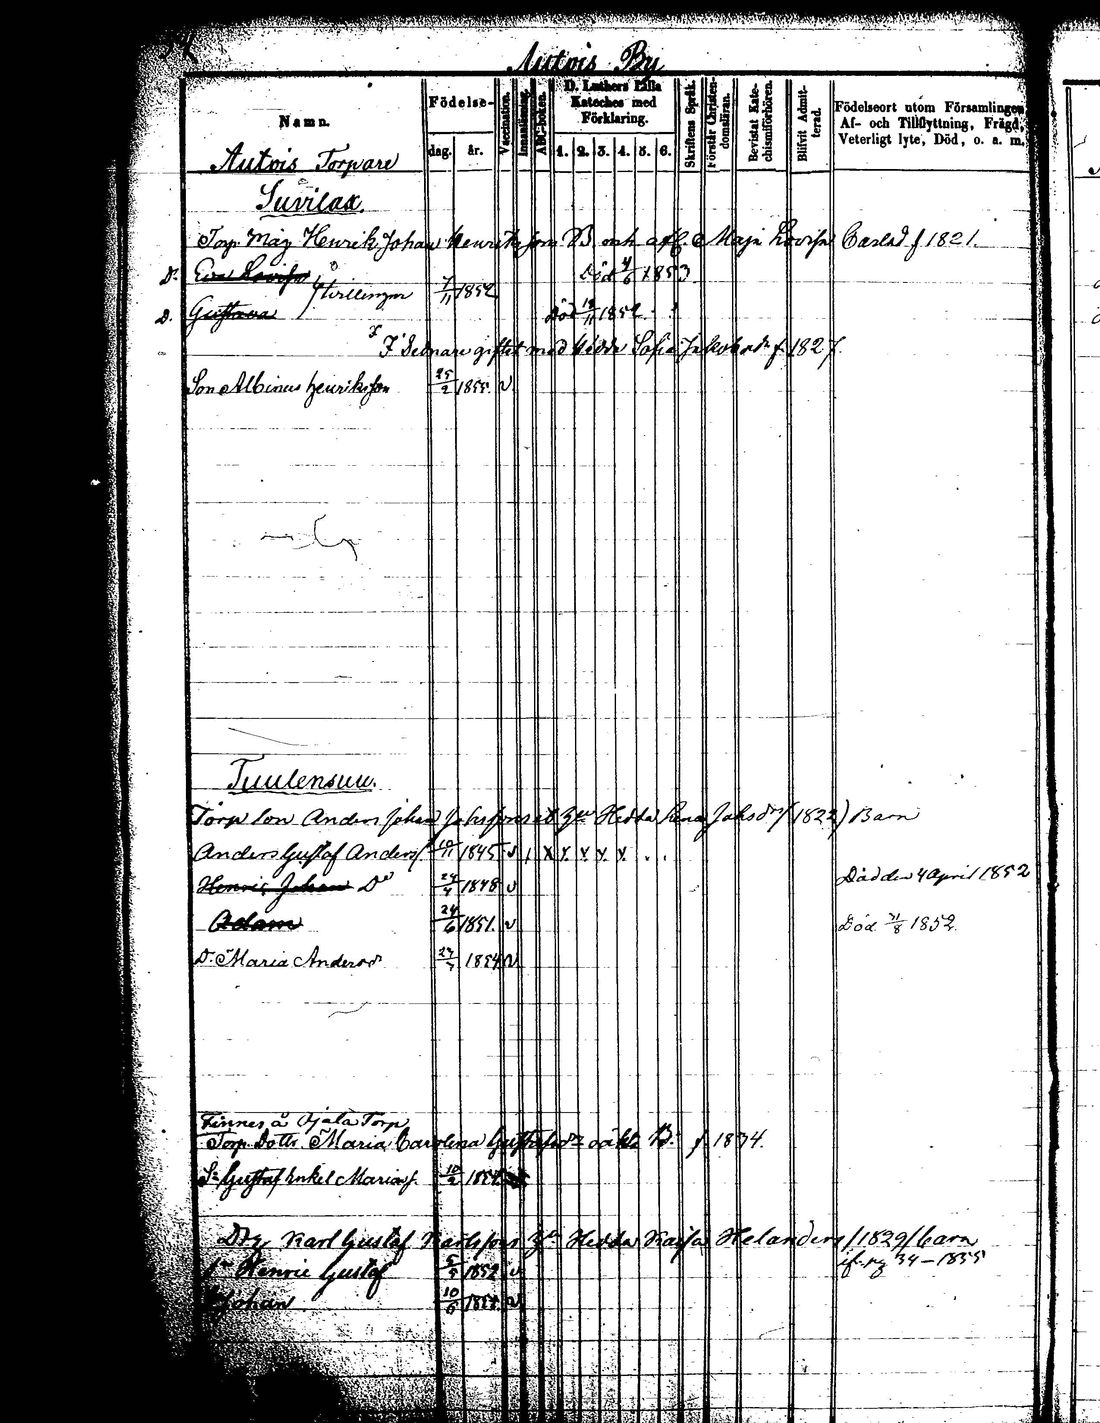 Autois By
Namn.
Födelse-
dag. år.
Vaccination.
Innanläsning.
ABC-boken.
D. Luthers Lilla Kateches med Förklaring.
1. 2. 3. 4. 5. 6.
Skriftens Språk.
Förstår Christendomsläran.
Bevistat Katechismiförhören.
Blifvit Admitterad.
Födelseort utom Församlingen,
Af- och Tillflyttning, Frägd,
Veterligt lyte, Död, o. a. m.
Autois Torpare
Suvilax.
Torp. Måg Henrik Johan Henriksson B och Maja Lovisa Carlsd f 1821.
D. Eva Lovisa Död 4/6 1853
tvillingar 7/11 1852
D. Gustava Död 12/11 1852
Sednare giftet med Hedda Sofia Jakobsdr f 1827.
Son Albinus Henriksson 25/2 1855. v
Tuulensuu.
Torp Son Anders Johan Hu Hedda Lena Jahsdr (1822) Barn
Anders Gustaf Anderss 10/11 1845 v
Henric Johan Do 1848 v Död den 4 April 1852
Adam 24/6 1851. v Död 31/8 1852.
D. Maria Andersdr 1854 v
Finnes å Ojala Torp
Torp. Dottr. Maria Carolina Gustafsdr B. f. 1834.
Sn Gustaf Enkel Mariaf. 10/2 1854
Drg Karl Gustaf Karlsson Hu Hedda Kaisa Helanders /1829/ barn
Henric Gustaf 5/5 1852 v 34-1855
Johan v